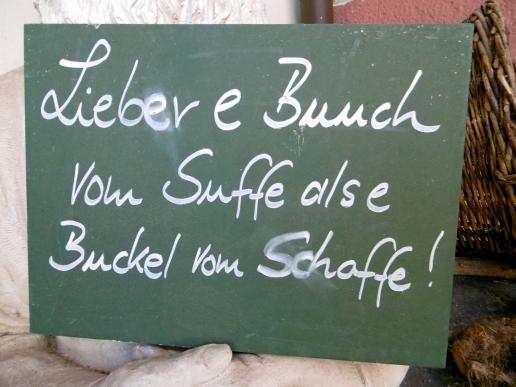 Lieber e Buuch
vom Suffe alse
Buckel vom Schaffe!